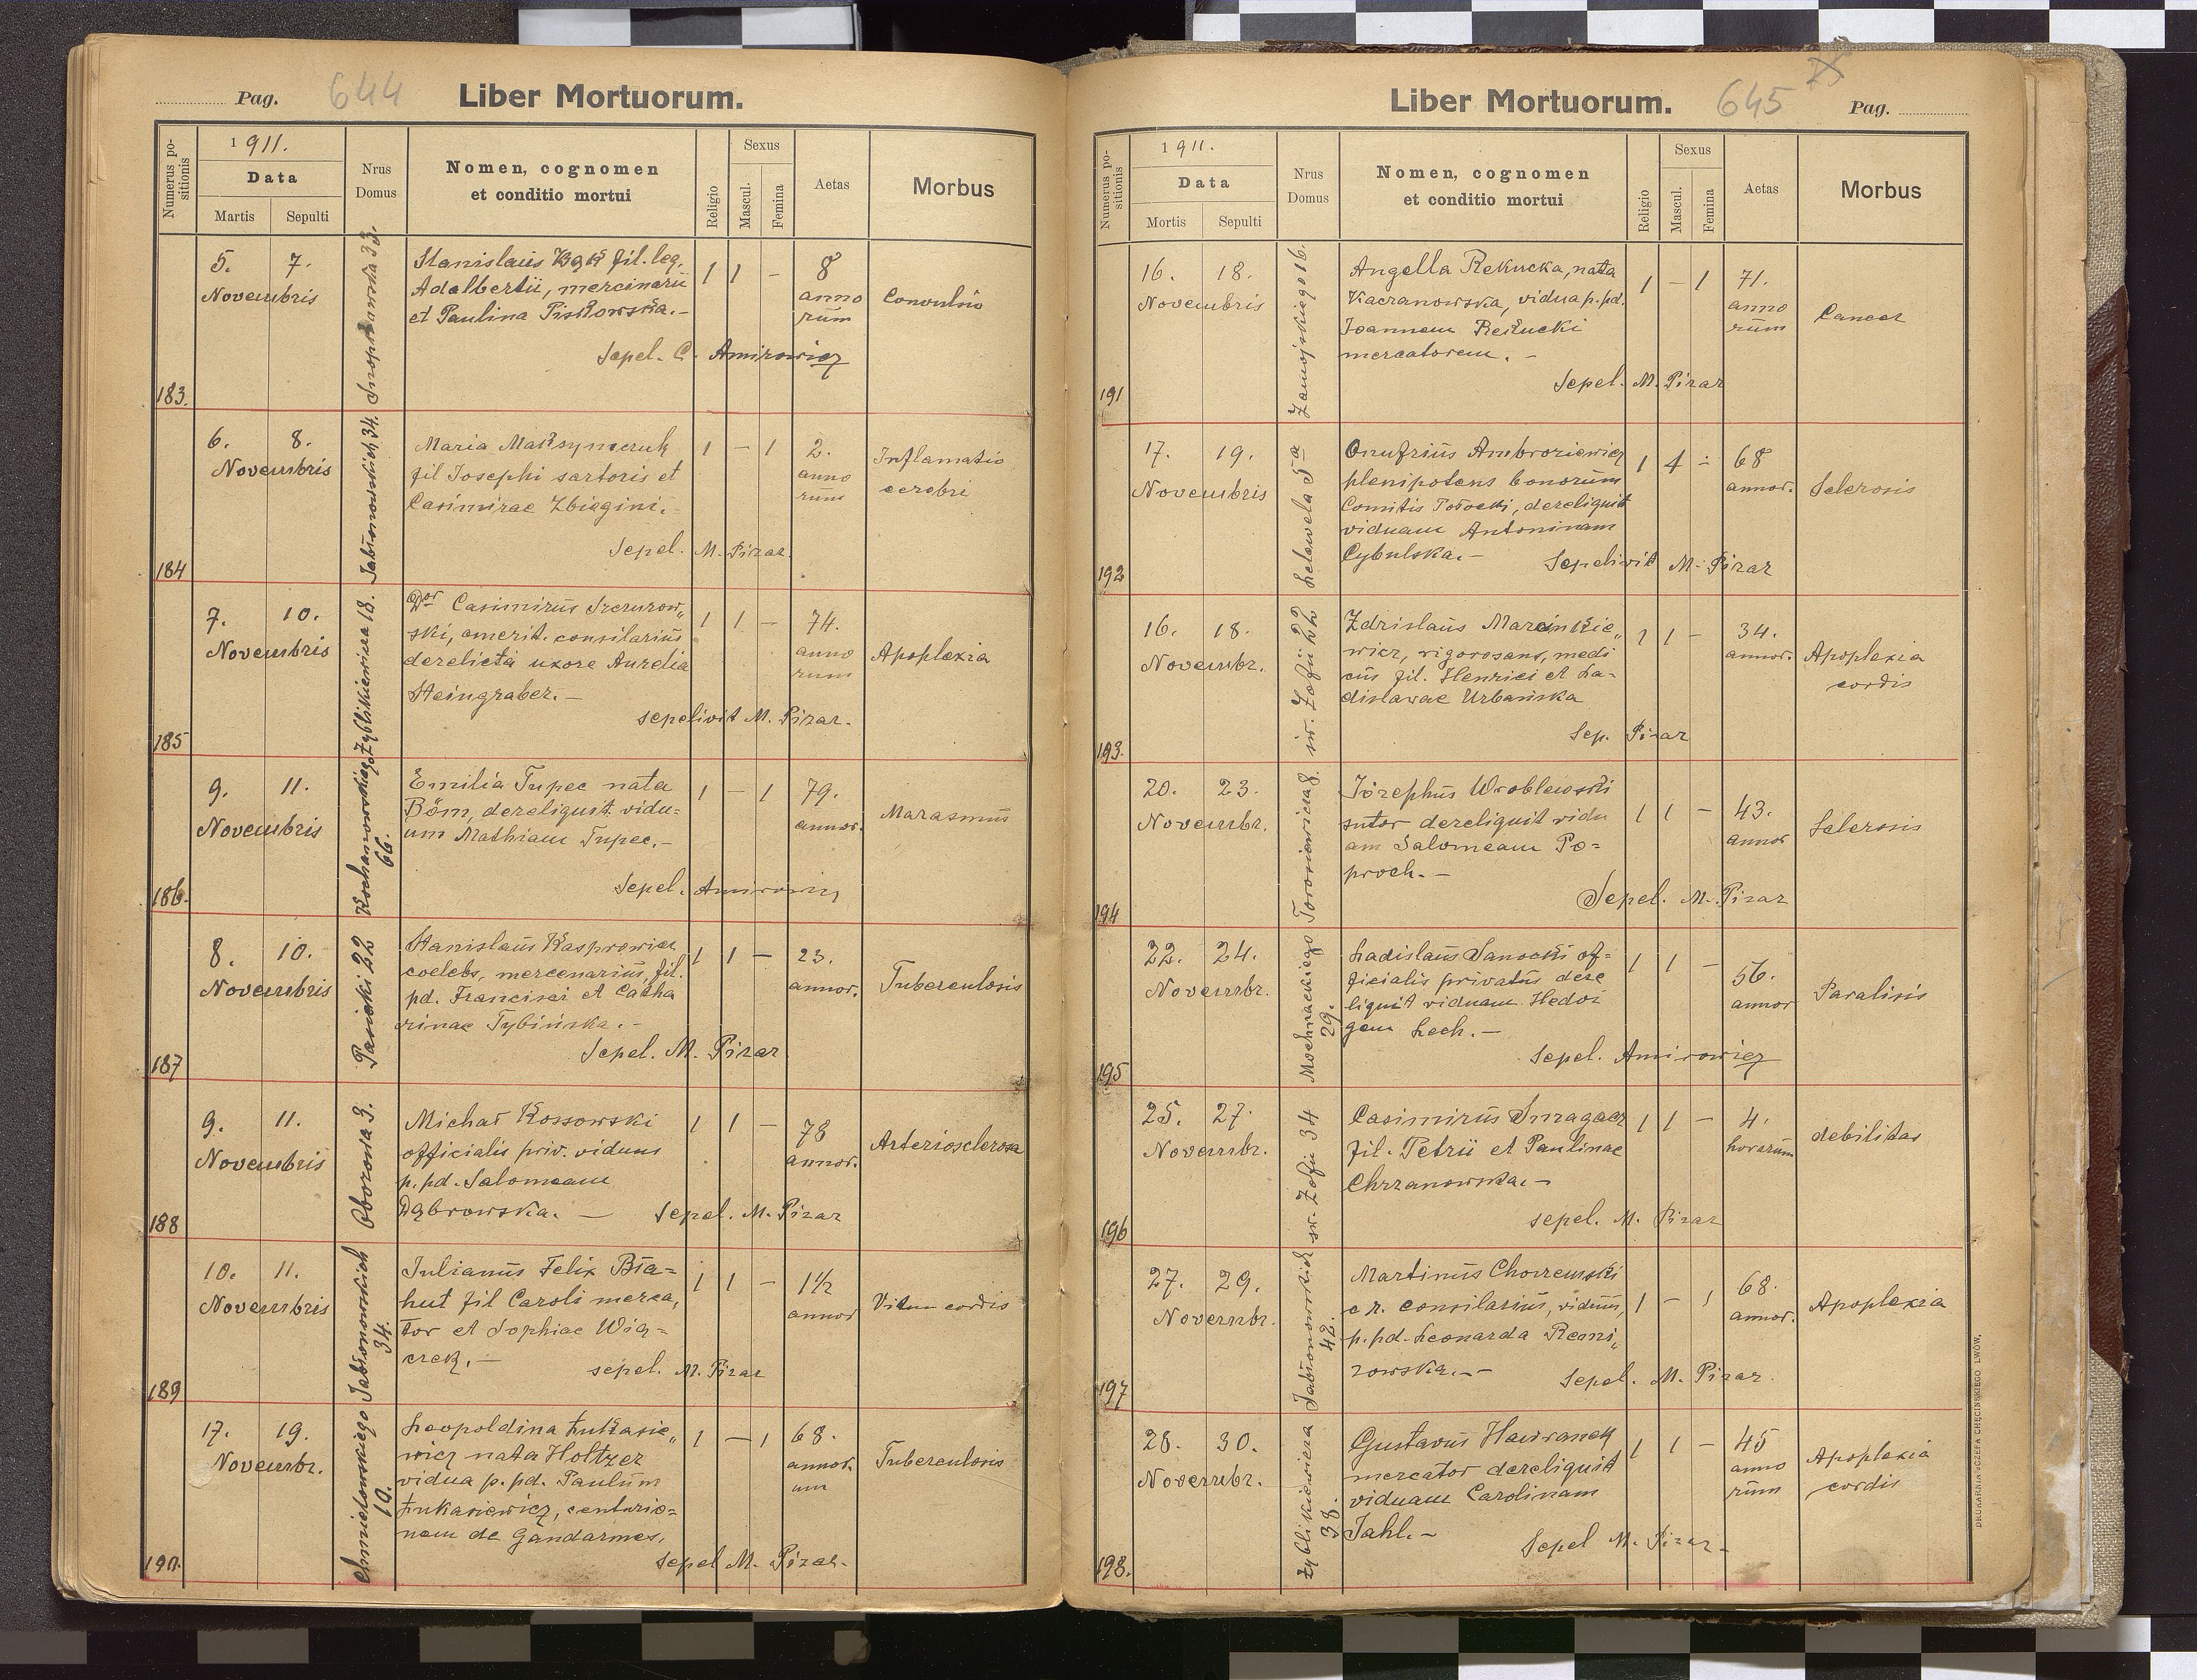 Pag. 644 Liber Mortuorum.
Numerus positionis
1911.
Data
Martis Sepulti
Nrus Domus
Nomen, cognomen
et conditio mortui
Religio
Sexus
Mascul.
Femina
Aetas
Morbus
183.
5. 7.
Novembris
Stanislaus Bąk fil. leg.
Adalbertii, mercinarii
et Paulina Piskorska.-
Sepel. C. Amirowicz
1 1 -
8
anno
rum
Convulsio
184
6. 8.
Novembris
Jabłonowskich 34.
Maria Maksymczuk
fil Josephi sartoris et
Casimirae Zbiegini.-
Sepel. M. Pizar.
1 - 1
2.
anno
rum
Inflamatio
cerebri
185
7. 10.
Novembris
Zyblikiewicza 18.
Dor Casimirus Szczurow„
ski, emerit. consilarius
derelicta uxore Aurelia
Steingraber.-
sepelivit M. Pizar.
1 1 -
74.
anno
rum
Apoplexia
186.
9. 11.
Novembris
Kochanowskiego
66.
Emilia Tupec nata
Böm, dereliquit vidu=
um Mathiam Tupec.-
Sepel. Amirowicz
1 - 1
79.
annor.
Marasmus
187
8. 10.
Novembris
Pasieki 22
Stanislaus Kasprowicz
coelebs, mercenarius, fil.
pd. Francisci et Catha
rinae Tybińska.-
Sepel. M. Pizar
1 1 -
23.
annor.
Tuberculosis
188
9. 11.
Novembris
Oborona 3.
Michał Kossowski
officialis priv. viduus
p. pd. Salomeam
Dąbrowska. -
Sepel. M. Pizar
1 1 -
78
annor.
Arteriosclerosa
189
10. 11.
Novembris
Jabłonowskich
34.
Julianus Felix Bia=
hut fil Caroli merca„
tor et Sophiae Wią=
czek.-
sepel. M. Pizar
1 1 -
1½
annor
Vitum cordis
190.
17. 19.
Novembr.
Chmielowskiego
10.
Leopoldina Łukasie„
wicz nata Holtzer
vidua p. pd. Paulum
Łukasiewicz, centurio=
nem de Gandarmes.
Sepel M. Pizar.
1 - 1
68.
annor.
um
Tuberculosis
Liber Mortuorum. 645 75 Pag.
Numerus positionis
1911.
Data
Mortis Sepulti
Nrus Domus
Nomen, cognomen
et conditio mortui
Religio
Sexus
Mascul.
Femina
Aetas
Morbus
191
16. 18.
Novembris
Zamojskiego 16.
Angella Rekucka, nata
Kaczanowska, vidua p. pd.
Joannem Rekucki
mercatorem.-
Sepel. M. Pizar
1 - 1
71.
anno
rum
Cancer
192
17. 19.
Novembris
Lelewela 5a
Onufrius Ambroziewicz
plenipotens bonorum
Comitis Potocki, dereliquit
viduam Antoninam
Cybulska.-
Sepelivit M. Pizar
1 1 -
68
annor.
Sclerosis
193.
16. 18.
Novembr.
św. Zofii 22
Zdzislaus Marcinkie„
wicz, rigorosans, medi
cus fil. Henrici et La-
dislawae Urbańska
Sep. Pizar
1 1 -
34.
annor.
Apoplexia
cordis
194
20. 23.
Novembr.
Torosiewicza 8.
Józephus Wroblewski
sutor dereliquit vidu
am Salomeam Po=
proch.-
Sepel. M. Pizar
1 1 -
43.
annor
Sclerosis
195
22. 24.
Novembr.
Mochnackiego
29.
Ladislaus Sanocki of=
ficialis privatus dere
liquit viduam Hedvi
gem Lech.-
Sepel. Amirowicz
1 1 -
56.
annor
Paralisis
196
25. 27.
Novembr.
św. Zofii 34
Casimirus Smagacz
fil. Petrii et Paulinae
Chrzanowska.-
sepel. M. Pizar
1 1 -
4.
horarum
debilitas
197
27. 29.
Novembr.
Jabłonowskich
42.
Martinus Chorzemski
c. r. consilarius, viduus,
p. pd. Leonarda
Sepel. M. Pizar.
1 - 1
68.
annor.
Apoplexia
198.
28. 30.
Novembr.
Zyblikiewicza
38.
Gustavus Hawranek
mercator dereliquit
viduam Carolinam
Jahl.-
Sepel M. Pizar-
1 1 -
45
anno
rum
Apoplexia
cordis
DRUKARNIA JÓZEFA CHĘCIŃSKIEGO LWÓW.